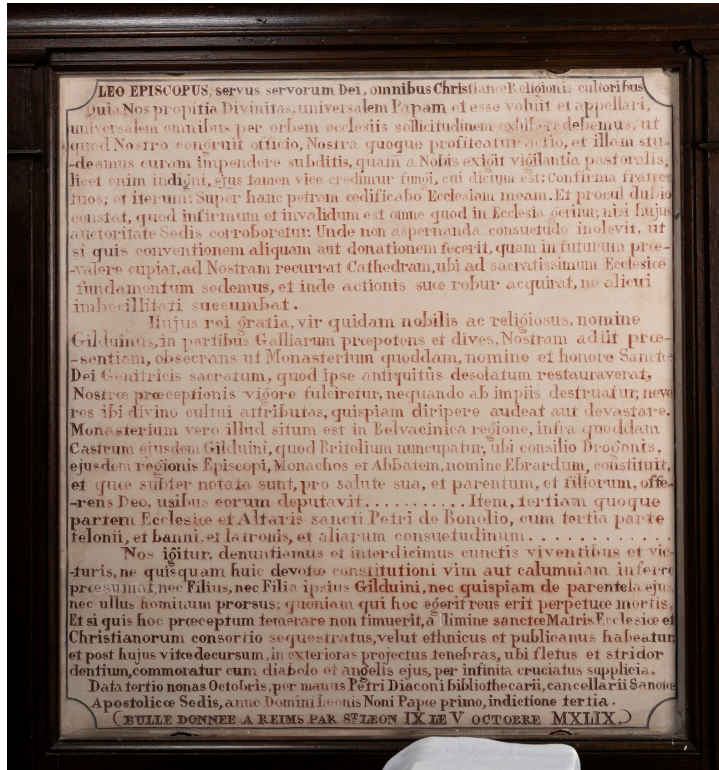 LEO EPISCOPUS, servus servorum Dei, omnibus Christianæ Religionis cultoribus
Quia Nos propitia Divinitas, universalem Papam et esse voluit et appellari,
universalem omnibus per orbem ecclesiis sollicitudinem exhibere debemus, ut
quod Nostro congruit officio, Nostra quoque profiteatur actio, et illam stu-
-deamus curam impendere subditis, quam a Nobis exigit vigilantia pastoralis;
licet enim indigni, ejus tamen vice credimur fungi, cui dictum est: Confirma fratres
tuos; et iterum: Super hanc petram œdificabo Ecclesiam meam. Et procul dubio
constat, quod infirmum et invalidum est omne quod in Ecclesia geritur, nisi hujus
auctoritate Sedis corroboretur. Unde non aspernanda consuetudo inolevit, ut
si quis conventionem aliquam aut donationem fecerit, quam in futurum præ-
-valere cupiat, ad Nostram recurrat Cathedram, ubi ad sacratissimum Ecclesiæ
fundamentum sedemus, et inde actionis suæ robur acquirat, ne alicui
imbecillitati succumbat.
Hujus rei gratia, vir quidam nobilis ac religiosus, nomine
Gilduinus, in partibus Galliarum præpotens et dives, Nostram adiit præ-
-sentiam, obsecrans ut Monasterium quoddam, nomine et honore Sanctæ
Dei Genitricis sacratum, quod ipse antiquitùs desolatum restauraverat,
Nostræ præceptionis vigore fulciretur, nequando ab impiis destruatur; neve
res ibi divino cultui attributas, quispiam diripere audeat aut devastare.
Monasterium vero illud situm est in Belvacinica regione, infra quoddam
Castrum ejusdem Gilduini, quod Britolium nuncupatur, ubi consilio Drogonis,
ejusdem regionis Episcopi, Monachos et Abbatem, nomine Ebrardum, constituit,
et quæ subter notata sunt, pro salute sua, et parentum, et filiorum, offe-
-rens Deo, usibus eorum deputavit.......... Item, tertiam quoque
partem Ecclesiæ et Altaris sancti Petri de Bonolio, cum tertia parte
telonii, et banni, et latronis, et aliarum consuetudinum.............
Nos igitur, denuntiamus et interdicimus cunctis viventibus et vic-
-turis, ne quisquam huic devotæ constitutioni vim aut calumniam inferre
præsumat, nec Filius, nec Filia ipsius Gilduini, nec quispiam de parentela ejus,
nec ullus hominum prorsus; quoniam qui hoc egerit reus erit perpetuæ mortis.
Et si quis hoc præceptum temerare non timuerit, a limine sanctæ Matris Ecclesiæ et
Christianorum consortio sequestratus, velut ethnicus et publicanus habeatur,
et post hujus vitæ decursum, in exterioras projectus tenebras, ubi fletus et stridor
dentium, commoratur cum diabolo et angelis ejus, per infinita cruciatus supplicia.
Data tertio nonas Octobris, per manus Petri Diaconi bibliothecarii, cancellarii Sanctæ
Apostolicæ Sedis, anno Domini Leonis Noni Papæ primo, indictione tertia.
(BULLE DONNEE A REIMS PAR ST. LEON IX LE V OCTOBRE MXLIX.)